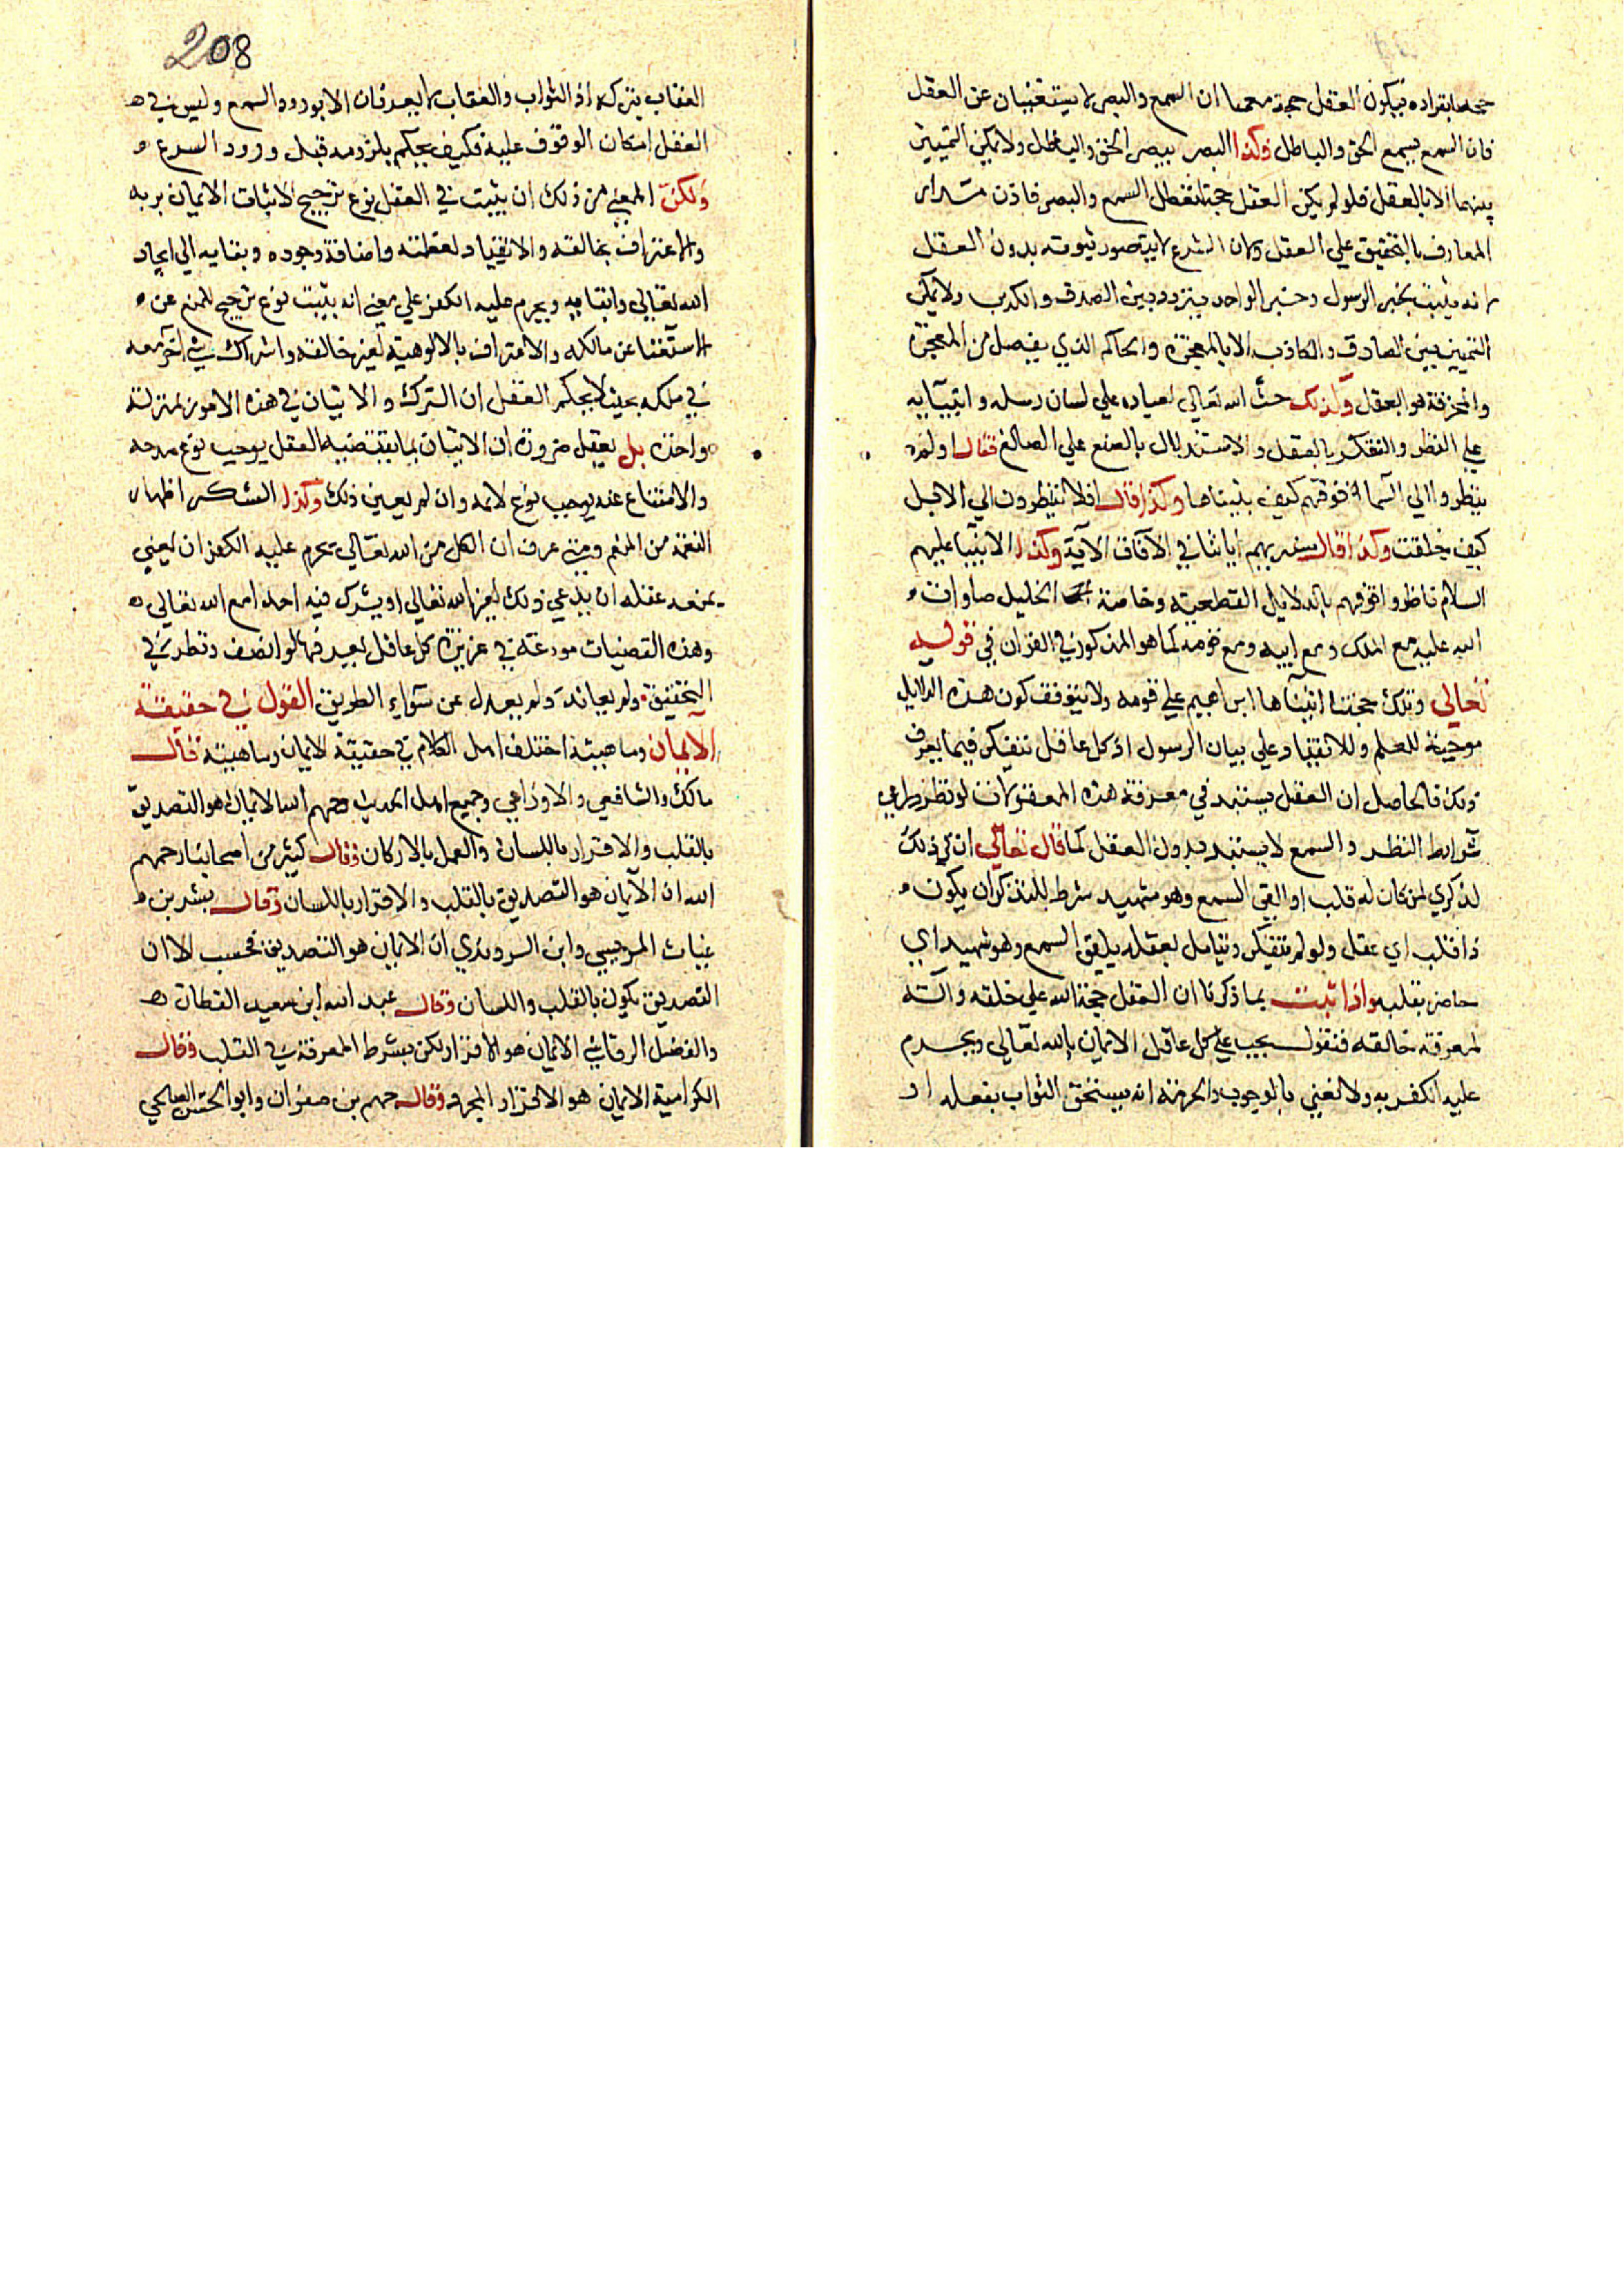 حجة بانفراده فيكون العقل حجة معهما ان السمع والبصر لا يستغنيان عن العقل
فان السمع يسمع الحق والباطل وكذا البصر يبصر الحق والباطل ولا يمكن التمييز
بينهما الا بالعقل فلو لم يكن العقل حجة لتعطل السمع والبصر فاذن مدار
المعارف بالتحقيق على العقل ولان الشرع لا يتصور ثبوته بدون العقل
لانه يثبت بخبر الرسول وخبر الواحد يتردد بين الصدق والكذب ولا يمكن
التمييز بين الصادق والكاذب الا بالمعجزة والحاكم الذي يفصل من المعجزة
والمخرقة هو العقل ولذلك حث الله تعالي لعباده علي لسان رسله وانبيايه
علي النظر والتفكر بالعقل والاستدلال بالصنع علي الصانع فقال اولم
ينظروا الي السماء فوقهم كيف بنيناها وكذا قال افلا ينظرون الي الابل
كيف خلقت وكذا قال سنريهم اياتنا في الآفاق الآية وكذا الانبيا عليهم
السلام ناظروا اقوامهم بالدلايل القطعية وخاصة الخليل صلوات
الله عليه مع الملك ومع ابيه ومع قومه كما هو المذكور في القران في قوله
تعالي وتلك حجتنا اتيناها ابراهيم علي قومه ولا يتوقف كون هذه الدلايل
موجبة للعلم وللانقياد علي بيان الرسول اذ كل عاقل تفكر فيما يعرف
ذلك فالحاصل ان العقل يستبد في معرفة هذه المعقولات لو نظر وراعي
شرايط النظر والسمع لا يستبد بدون العقل كما قال تعالي ان في ذلك
لذكري لمن كان له قلب او القي السمع وهو شهيد شرط للتذكر ان يكون
ذا قلب اي عقل ولو لم يتفكر ويتامل بعقله يلقي السمع وهو شهيد اي
حاضر بقلبه واذا ثبت بما ذكرنا ان العقل حجة الله علي خلقه وآلته
لمعرفة خالقه فنقول يجب علي كل عاقل الايمان بالله تعالي ويحرم
عليه الكفر به ولا نعني بالوجوب والحرمة انه يستحق الثواب بفعله او
208
العقاب بتركه اذ الثواب والعقاب لا يعرفان الا بورود السمع وليس في
العقل امكان الوقوف عليه فكيف يحكم بلزومه قبل ورود الشرع
ولكن المعني من ذلك ان يثبت في العقل نوع ترجيح لاثبات الايمان بربه
والاعتراف بخالقه والانقياد لعظمته واضافة وجوده وبقايه الي ايجاد
الله تعالي وابقايه ويحرم عليه الكفر علي معني انه يثبت نوع ترجيح للمنع عن
الاستغنا عن مالكه والاعتراف بالالوهية لغير خالقه واشراك شي آخر معه
في ملكه بحيث لا يحكم العقل ان الترك والاتيان في هذه الامور بمنزلة
واحدة بل يعقل ضرورة ان الاتيان بما يقتضيه العقل يوجب نوع مدحه
والامتناع عنه يوجب نوع لايمه وان لم يعين ذلك وكذا الشكر اظهار
النعمة من المنعم ومن عرف ان الكل من الله تعالي يحرم عليه الكفران يعني
يمنعه عقله ان يدعي ذلك لغير الله تعالي او يشرك فيه احدا مع الله تعالي
وهذه القضيات مودعة في غريزة كل عاقل يعيد فهمها لو انصف ونظر في
التحقيق ولم يعاند ولم يعدل عن سواء الطريق القول في حقيقة
الايمان وماهيته اختلف اهل الكلام في حقيقة الايمان وماهيته قال
مالك والشافعي والاوزاعي وجميع اهل الحديث رحمهم الله الايمان هو التصديق
بالقلب والاقرار باللسان والعمل بالاركان وقال كثير من اصحابنا رحمهم
الله ان الايمان هو التصديق بالقلب والاقرار باللسان وقال بشر بن
غياث المريسي وابن الروندي ان الايمان هو التصديق فحسب الا ان
التصديق يكون بالقلب واللسان وقال عبد الله ابن سعيد القطان
والفضل الرقاشي الايمان هو الاقرار لكن بشرط المعرفة في القلب وقال
الكرامية الايمان هو الاقرار المجرد وقال جهم بن صفوان وابو الحسين الصالحي